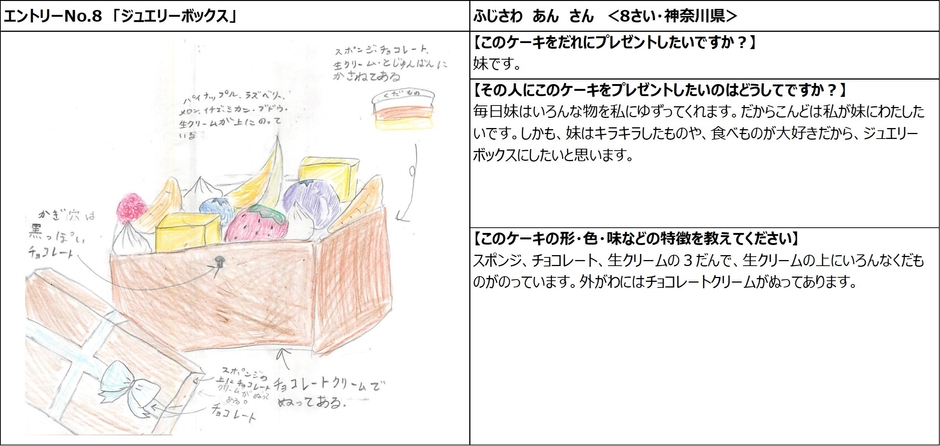 エントリーNo.8 「ジュエリーボックス」
ふじさわ あん さん <8さい・神奈川県>
【このケーキをだれにプレゼントしたいですか？】
妹です。
【その人にこのケーキをプレゼントしたいのはどうしてですか？】
毎日妹はいろんな物を私にゆずってくれます。だからこんどは私が妹にわたした
いです。しかも、妹はキラキラしたものや、食べものが大好きだから、ジュエリー
ボックスにしたいと思います。
【このケーキの形・色・味などの特徴を教えてください】
スポンジ、チョコレート、生クリームの３だんで、生クリームの上にいろんなくだも
のがのっています。外がわにはチョコレートクリームがぬってあります。
スポンジ・チョコレート、
生クリーム・とじゅんばんに
かさねてある
くだもの
パイナップル、ラズベリー、
メロン、イチゴ、ミカン・ブドウ・
生クリームが上にのって
いる
かぎ穴は
黒っぽい
チョコレート
スポンジの
上にチョコレート
クリームがぬって
ある。
チョコレート
チョコレートクリームで
ぬってある.